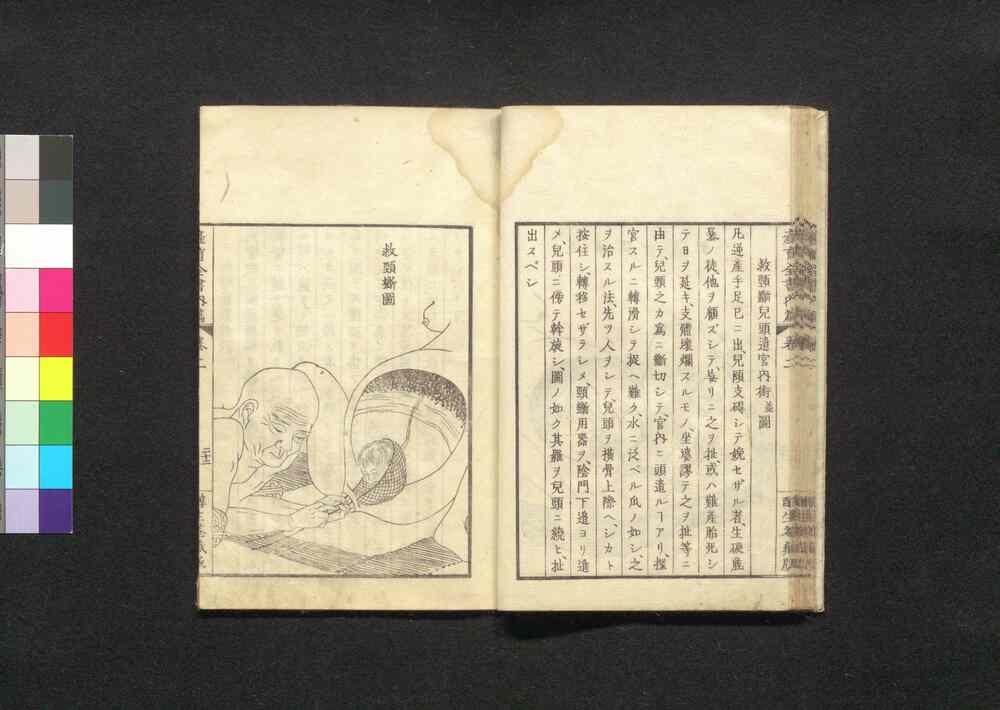 救頸斷兒頭遺宮內術 並圖
凡逆産手足已ニ出、兒頤支礙シテ娩セザル者、生硬麁
暴ノ徒、他ヲ顧ズシテ、妄リニ之ヲ扯、或ハ難産胎死シ
テ日ヲ延キ、支體壞爛スルモノ、坐婆謬テ之ヲ扯等ニ
由テ、兒頸之カ爲ニ斷切シテ、宮內ニ頭遺ルヿアリ、探
宮スルニ轉滑シヲ捉ヘ難ク、水ニ泛ベル瓜ノ如シ、之
ヲ治スル法、先ヲ人ヲシテ、兒頭ヲ橫骨上際ヘ、シカト
按住シ、轉移セザラシメ、頸斷用器ヲ、陰門下邊ヨリ進
メ、兒頭ニ傍テ斡旋シ、圖ノ如ク其羅ヲ兒頭ニ繞ヒ、扯
出スベシ
救頸斷圖
産育全書內篇
卷二